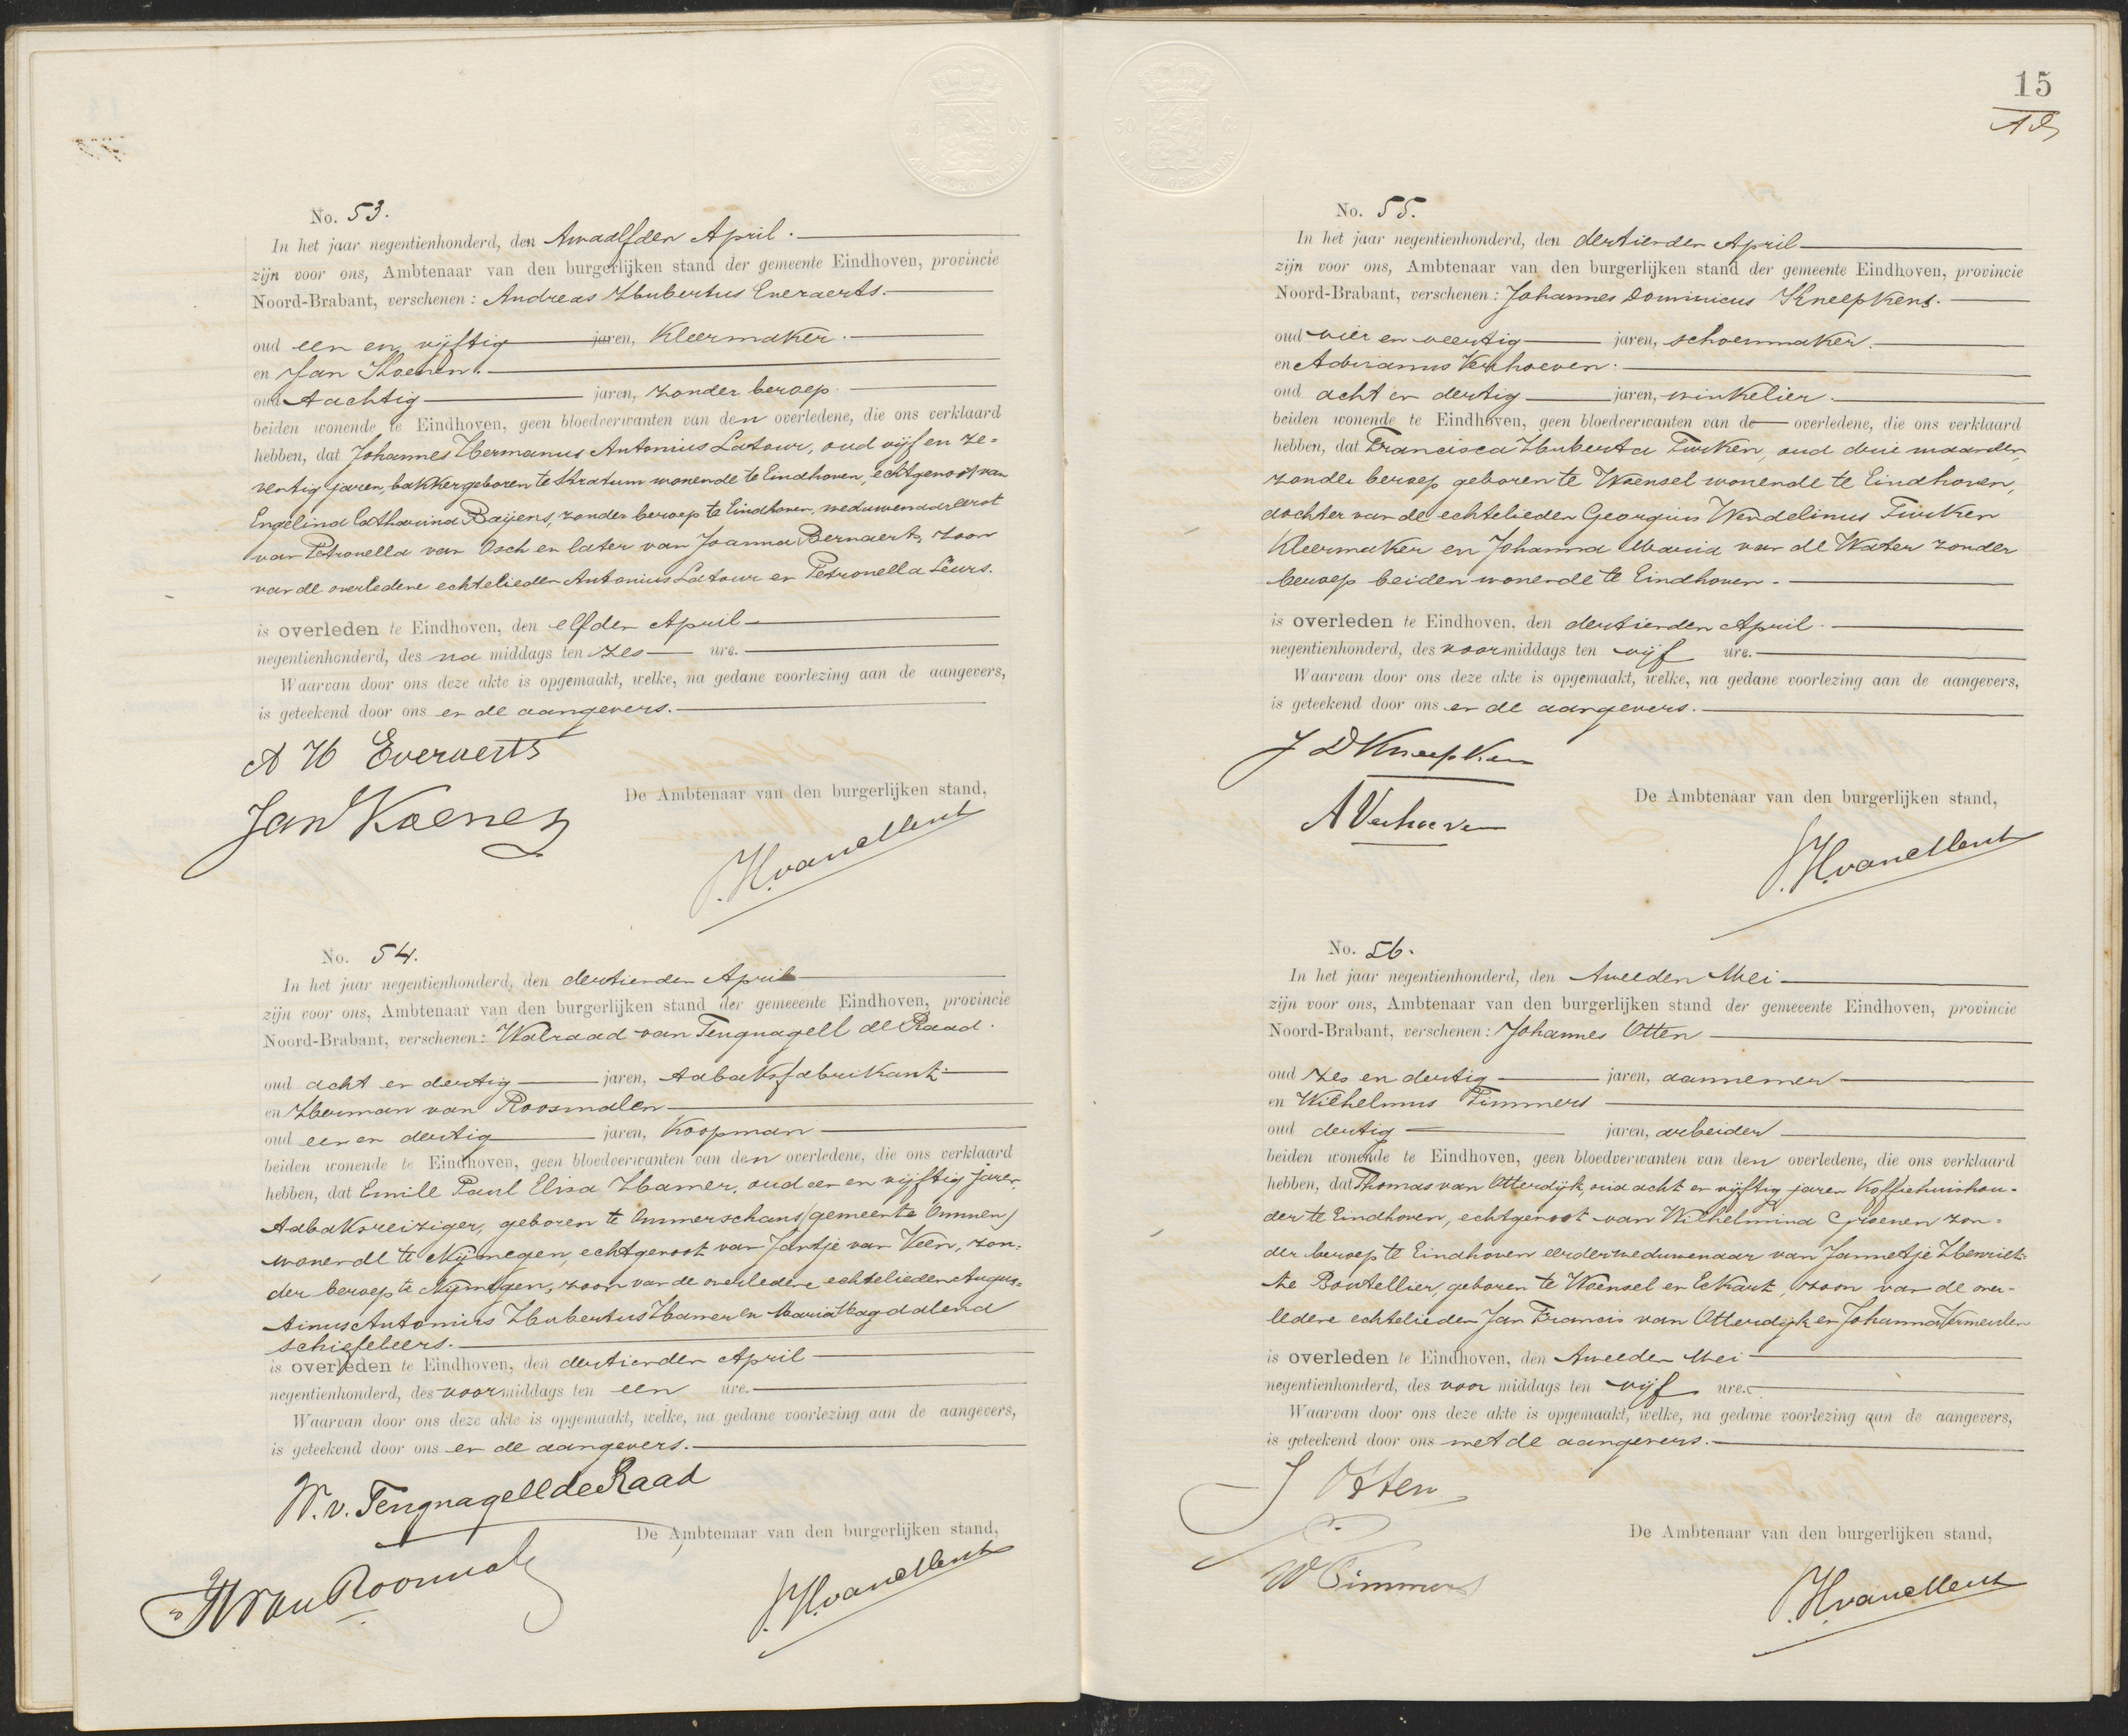 No. 53.
In het jaar negentienhonderd, den twaalfden April.
zijn voor ons, Ambtenaar van den burgerlijken stand der gemeente Eindhoven, provincie
Noord-Brabant, verschenen: Andreas Hubertus Everaerts.
oud een en vijftig jaren, kleermaker.
en Jan Koenen.
oud tachtig jaren, zonder beroep.
beiden wonende te Eindhoven, geen bloedverwanten van den overledene, die ons verklaard
hebben, dat Johannes Hermanus Antonius Latour, oud vijf en ze=
ventig jaren, bakker geboren te Stratum wonende te Eindhoven, echtgenoot van
Engelina Catharina Baijens, zonder beroep te Eindhoven, weduwenaar eerst
van Petronella van Osch en later van Joanna Bernaerts, zoon
van de overledene echtelieden Antonius Latour en Petronella Leurs.
is overleden te Eindhoven, den elfden April
negentienhonderd, des na middags ten zes ure.
Waarvan door ons deze akte is opgemaakt, welke, na gedane voorlezing aan de aangevers,
is geteekend door ons en de aangevers.
A H Everaerts
De Ambtenaar van den burgerlijken stand,
Jan Koenen
J. H. van Mens
No. 54.
In het jaar negentienhonderd, den dertienden April
zijn voor ons, Ambtenaar van den burgerlijken stand der gemeeente Eindhoven, provincie
Noord-Brabant, verschenen: Walraad van Tengnagell de Raad.
oud acht en dertig jaren, tabaksfabrikant
en Herman van Roosmalen
oud een en dertig jaren, koopman
beiden wonende te Eindhoven, geen bloedverwanten van den overledene, die ons verklaard
hebben, dat Emile Paul Elisa Hamer, oud een en vijftig jaren,
tabaksreiziger, geboren te Ommerschans (gemeente Ommen)
wonende te Nijmegen, echtgenoot van Jantje van Veen, zon=
der beroep te Nijmegen, zoon van de overledene echtelieden Augus=
tinus Antonius Hubertus Hamer en Maria Magdalena
Schiefeleers.
is overleden te Eindhoven, den dertienden April
negentienhonderd, des voormiddags ten een ure.
Waarvan door ons deze akte is opgemaakt, welke, na gedane voorlezing aan de aangevers,
is geteekend door ons en de aangevers.
W. v. Tengnagell de Raad
De Ambtenaar van den burgerlijken stand,
H van Roosmalen
15
No. 55.
In het jaar negentienhonderd, den dertienden April
zijn voor ons, Ambtenaar van den burgerlijken stand der gemeente Eindhoven, provincie
Noord-Brabant, verschenen: Johannes Dominicus Kneepkens.
oud vier en veertig jaren, schoenmaker.
en Adrianus Verhoeven.
oud acht en dertig jaren, winkelier.
beiden wonende te Eindhoven, geen bloedverwanten van de overledene, die ons verklaard
hebben, dat Francisca Huberta Turken, oud drie maanden,
zonder beroep geboren te Woensel wonende te Eindhoven,
dochter van de echtelieden Georgius Wendelinus Turken
kleermaker en Johanna Maria van de Water zonder
beroep beiden wonende te Eindhoven.
is overleden te Eindhoven, den dertienden April.
negentienhonderd, des voormiddags ten vijf ure.
Waarvan door ons deze akte is opgemaakt, welke, na gedane voorlezing aan de aangevers,
is geteekend door ons en de aangevers.
J D Kneepkens
De Ambtenaar van den burgerlijken stand,
A Verhoeven
No. 56.
In het jaar negentienhonderd, den tweeden Mei
zijn voor ons, Ambtenaar van den burgerlijken stand der gemeeente Eindhoven, provincie
Noord-Brabant, verschenen: Johannes Otten
oud zes en dertig jaren, aannemer
en Wilhelmus Timmers
oud dertig jaren, arbeider
beiden wonende te Eindhoven, geen bloedverwanten van den overledene, die ons verklaard
hebben, dat Thomas van Otterdijk, oud acht en vijftig jaren koffiehuishou=
der te Eindhoven, echtgenoot van Wilhelmina Groenen zon=
der beroep te Eindhoven eerder weduwenaar van Jannetje Henriet=
te Boutellier, geboren te Woensel en Eckart, zoon van de over-
ledene echtelieden Jan Francis van Otterdijk en Johanna Vermeulen
is overleden te Eindhoven, den tweeden Mei
negentienhonderd, des voor middags ten vijf ure.
Waarvan door ons deze akte is opgemaakt, welke, na gedane voorlezing aan de aangevers,
is geteekend door ons met de aangevers.
J Otten
De Ambtenaar van den burgerlijken stand,
W Timmers